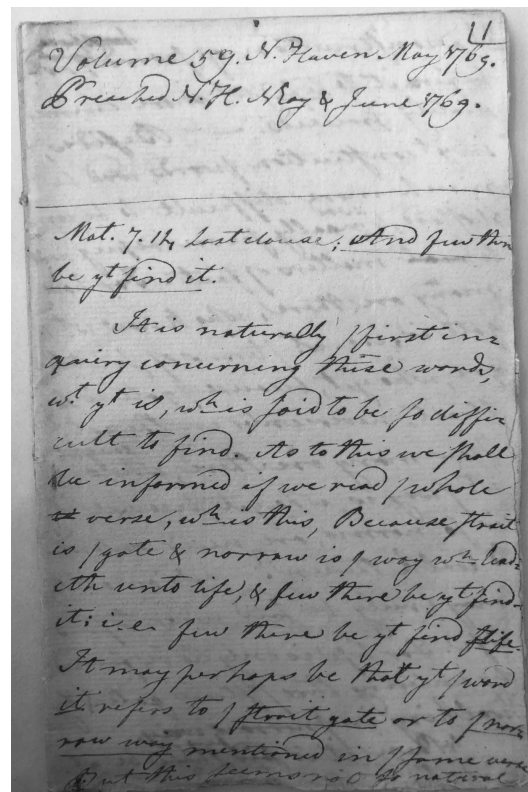 11
Volume 59. N. Haven May 1769.
Preached N. H. May & June 1769.
Mat. 7. 14, last clause; And few there
be yt find it.
It is naturally / first in=
quiry concerning these words,
wt. yt is, wh. is said to be so diffi=
cult to find. As to this we shall
be informed if we read / whole
verse, wh. is this, Because strait
is / gate & narrow is / way wh. lead=
eth unto life, & few there be yt find
it: i.e. few there be yt find life.
It may perhaps be that yt / word
it refers to / strait gate or to / nar=
row way mentioned in / same verse
But this seems not so natural